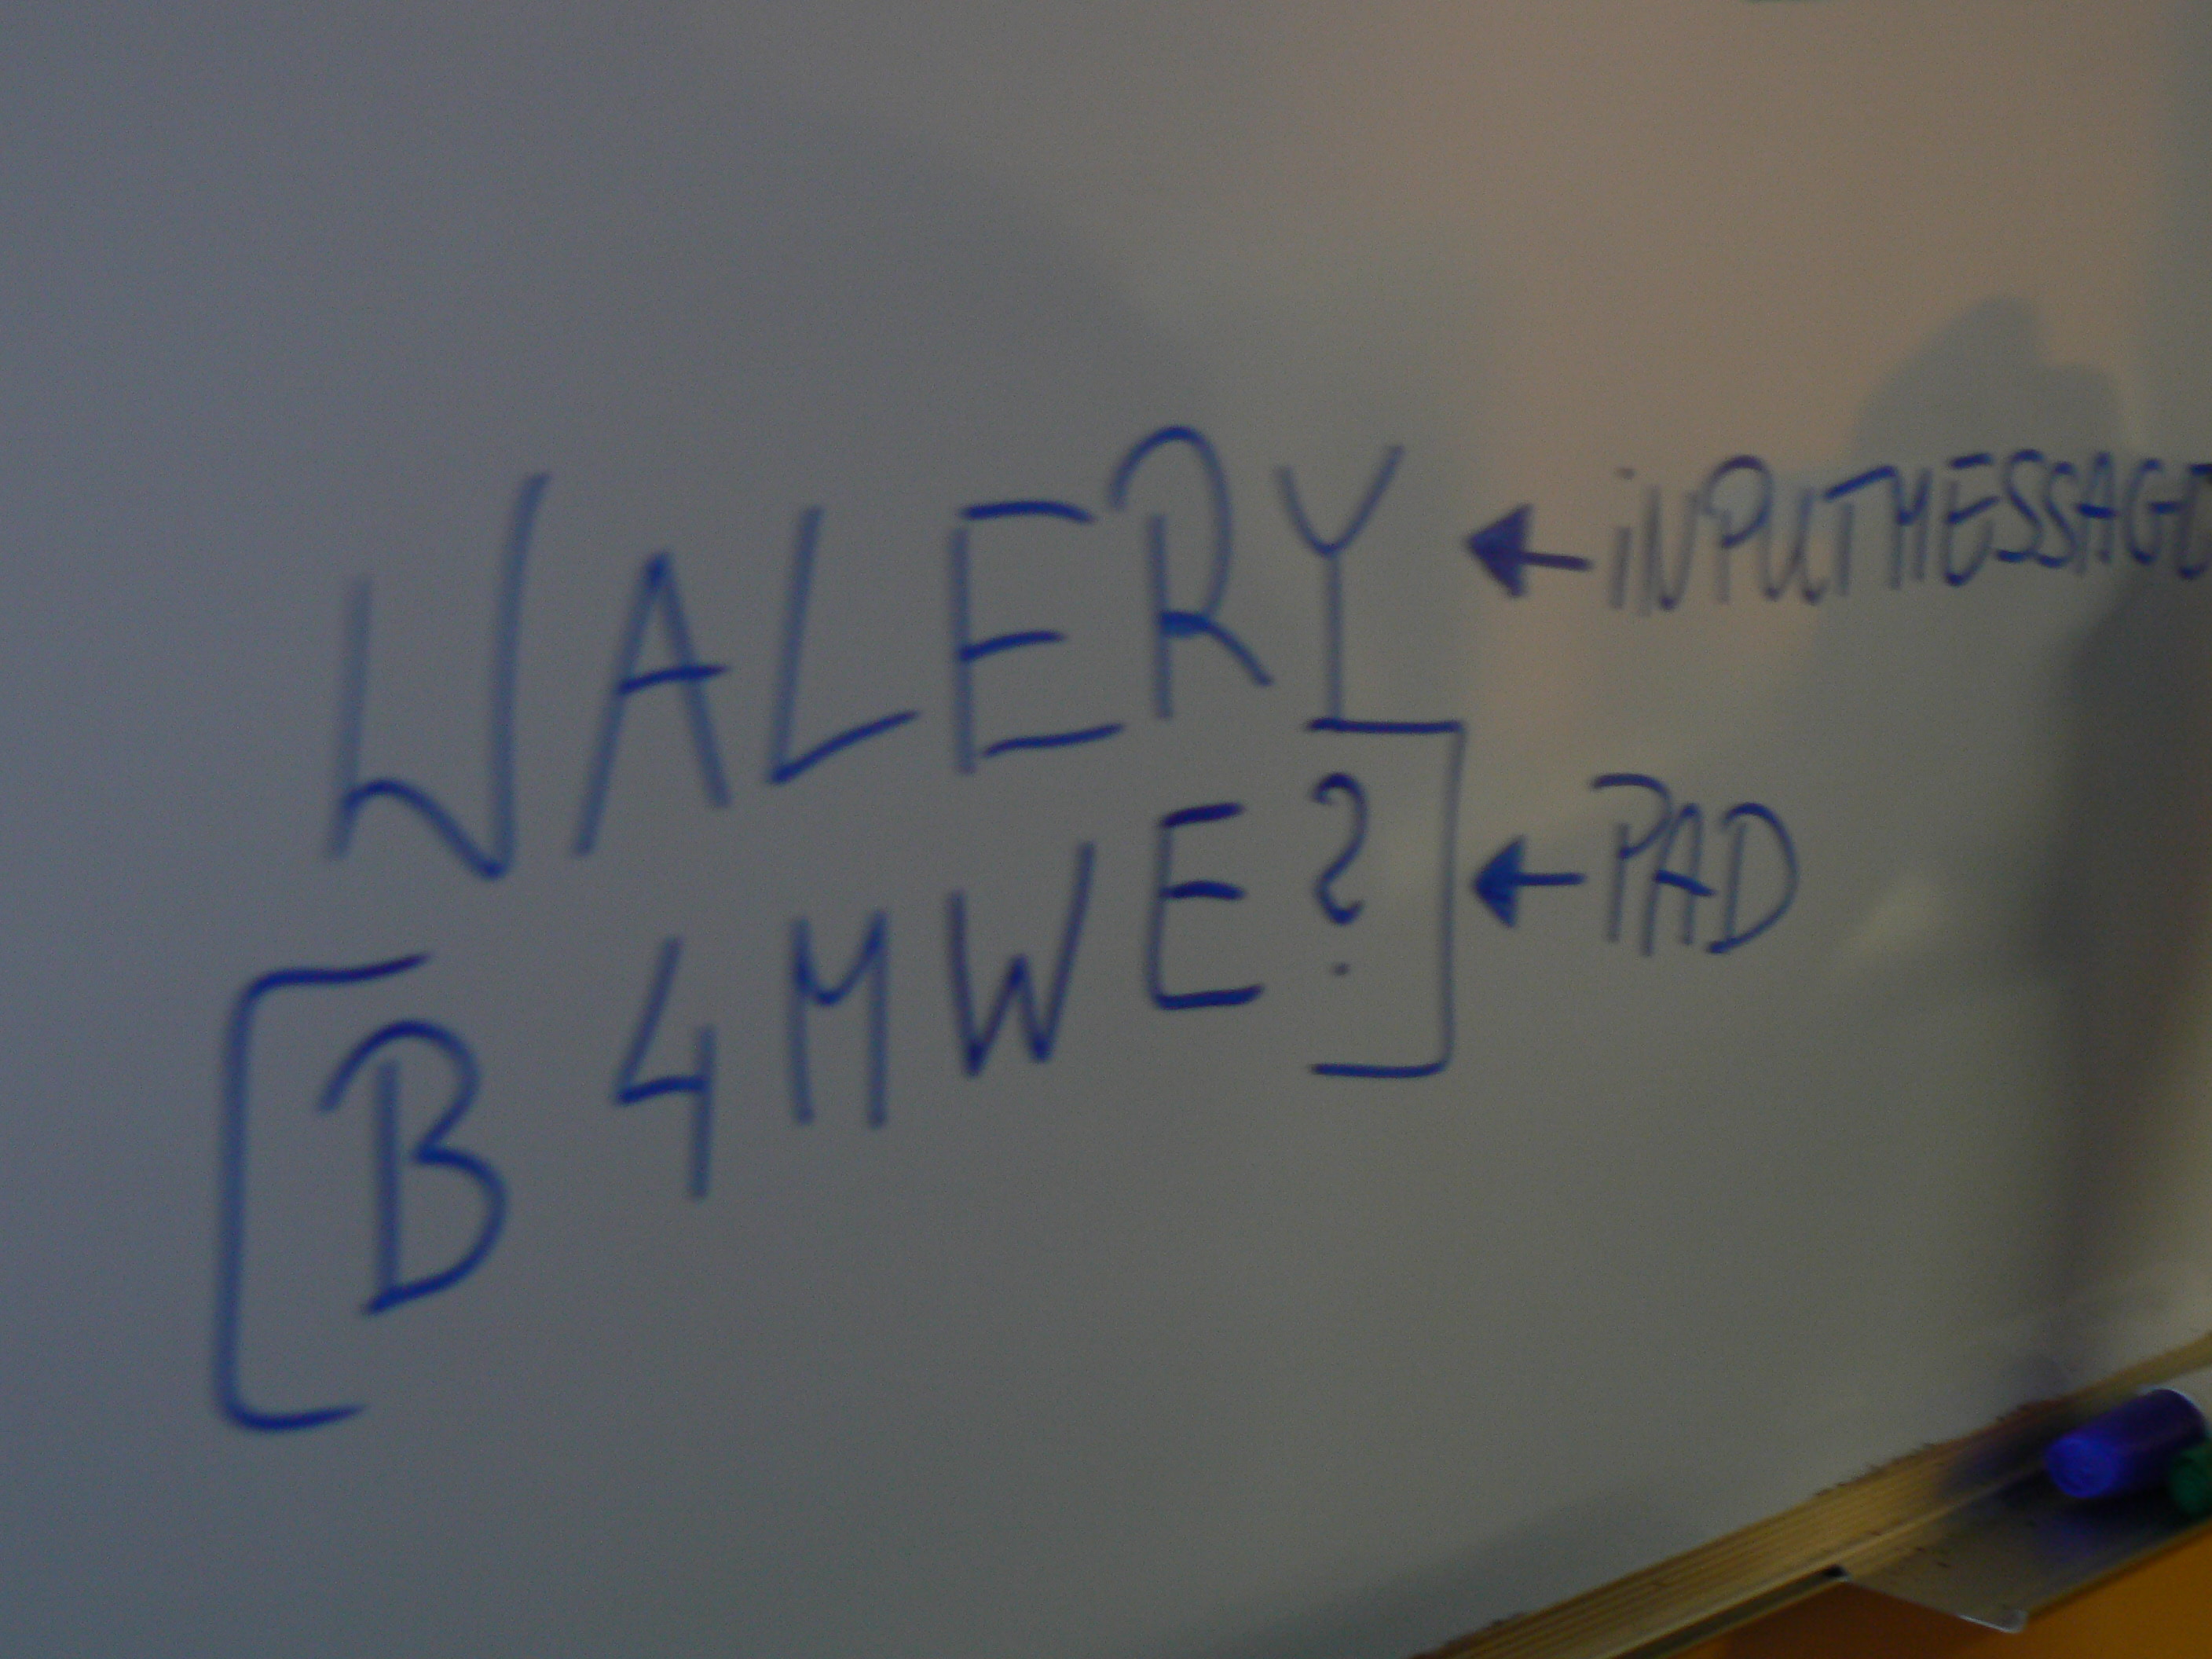 WALERY ← iNPUTMESSAGE
[B4MWE?] ← PAD